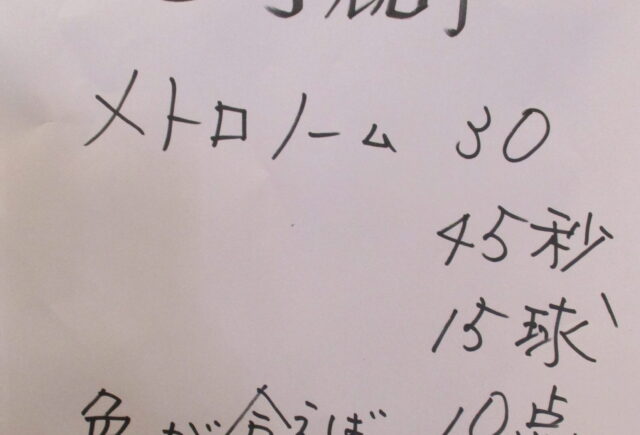 メトロノーム 30
45秒
15球
色が合えば 10点